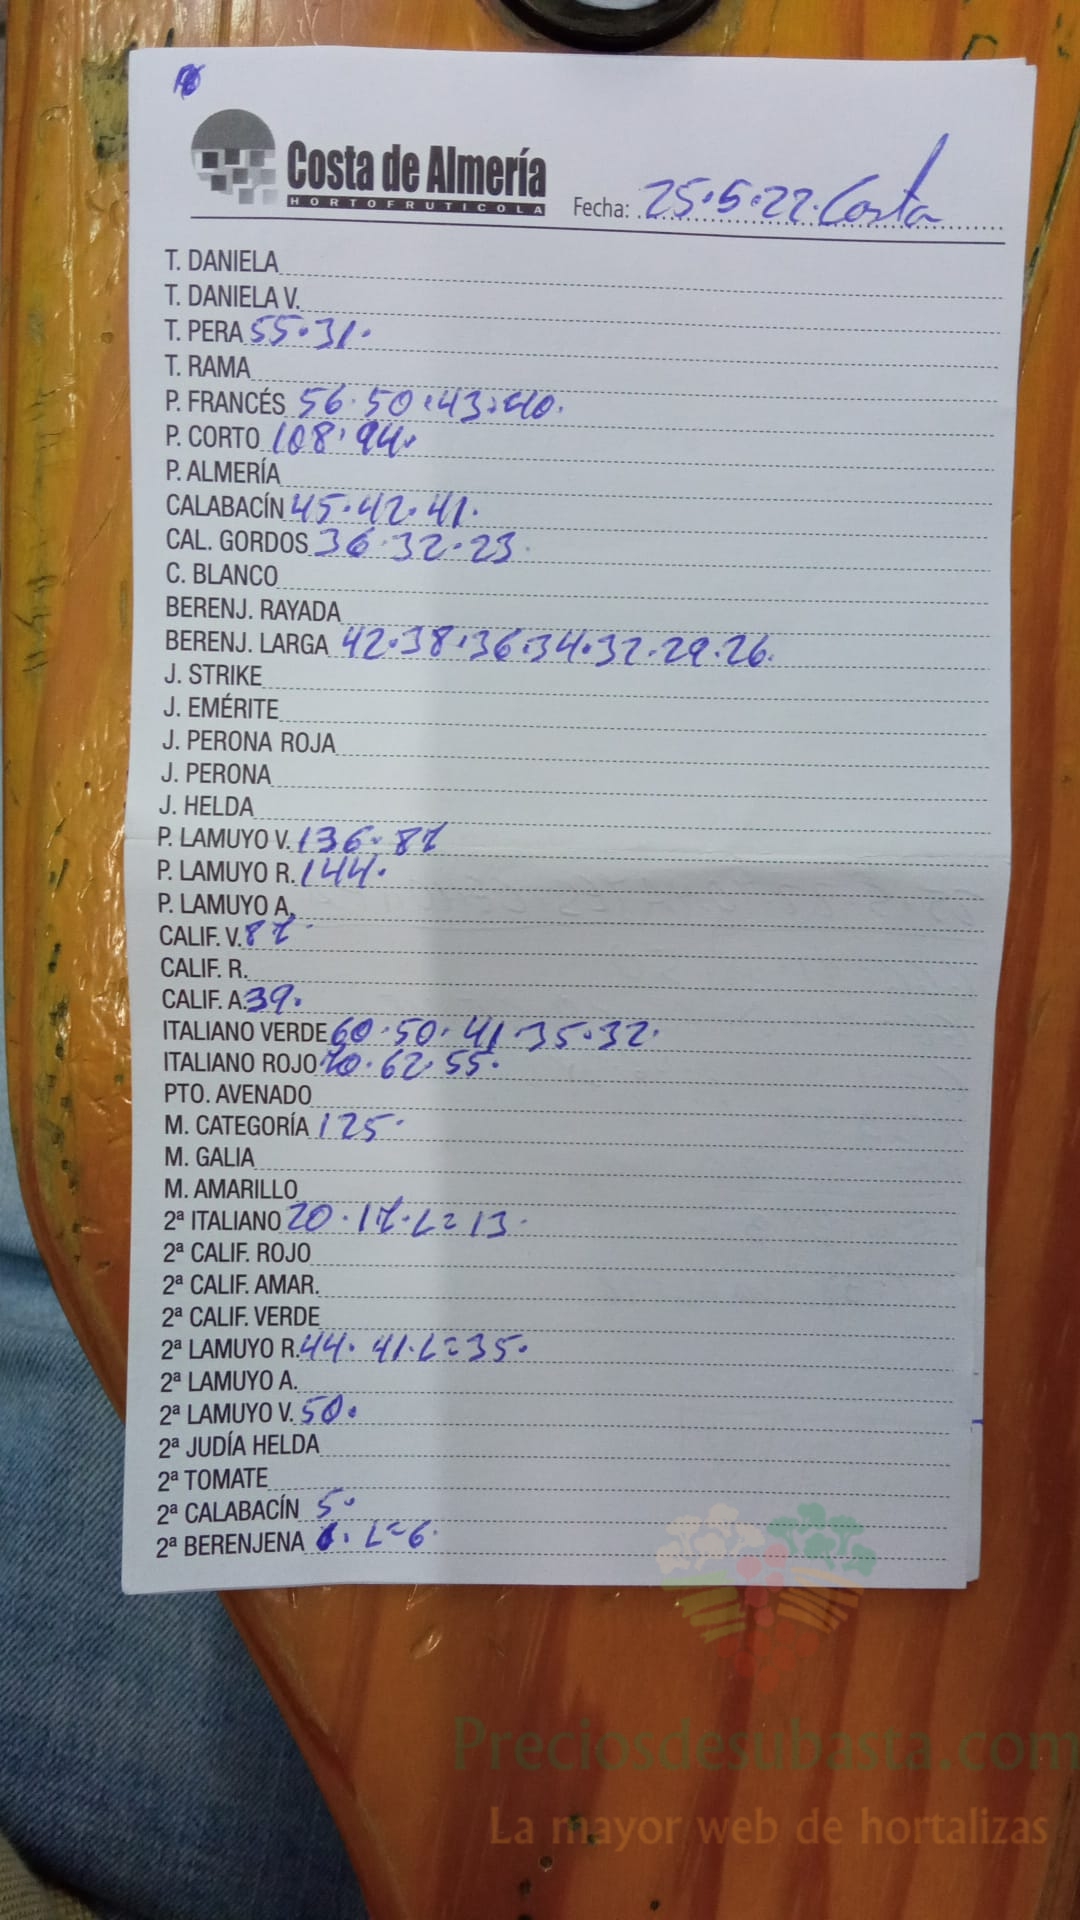 Costa de Almería
HORTOFRUTICOLA
Fecha: 25.5.22. Costa
T. DANIELA
T. DANIELA V.
T. PERA 55.31.
T. RAMA
P. FRANCÉS 56.50.43.40.
P. CORTO 108.94.
P. ALMERÍA
CALABACÍN 45.42.41.
CAL. GORDOS 36.32.23.
C. BLANCO
BERENJ. RAYADA
BERENJ. LARGA 42.38.36.34.32.29.26.
J. STRIKE
J. EMÉRITE
J. PERONA ROJA
J. PERONA
J. HELDA
P. LAMUYO V. 136.87
P. LAMUYO R. 144.
P. LAMUYO A.
CALIF. V. 87.
CALIF. R.
CALIF. A. 39.
ITALIANO VERDE 60.50.41.35.32.
ITALIANO ROJO 70.62.55.
PTO. AVENADO
M. CATEGORÍA 125.
M. GALIA
M. AMARILLO
2ª ITALIANO 20.17.L=13.
2ª CALIF. ROJO
2ª CALIF. AMAR.
2ª CALIF. VERDE
2ª LAMUYO R. 44.41.L=35.
2ª LAMUYO A.
2ª LAMUYO V. 50.
2ª JUDÍA HELDA
2ª TOMATE
2ª CALABACÍN 5.
2ª BERENJENA L=6.
Preciosdesubasta.com
La mayor web de hortalizas